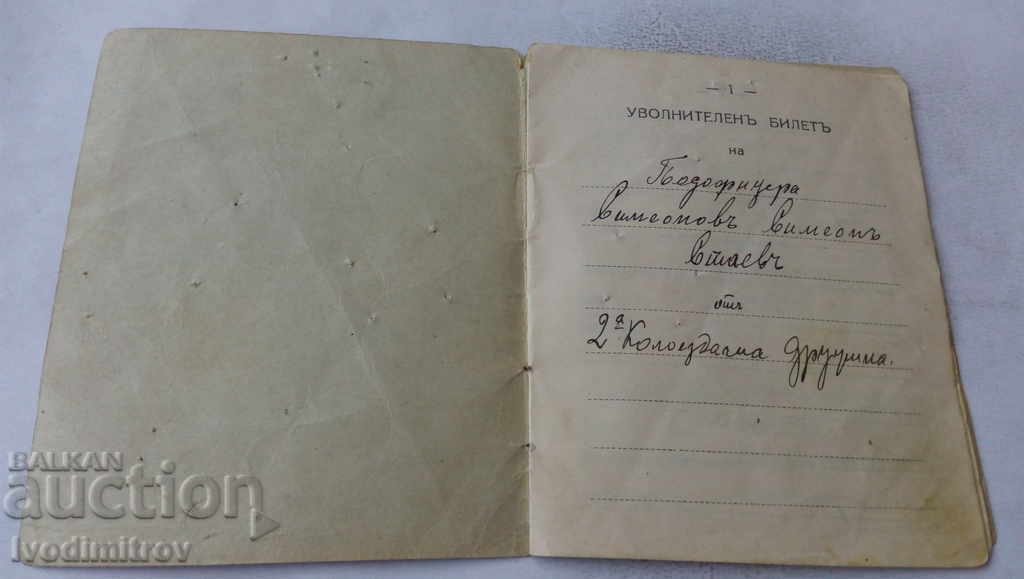 — 1 —
УВОЛНИТЕЛЕНЪ БИЛЕТЪ
на
Подофицера
Симеоновъ Симеонъ
Стаевъ
отъ
2а Колоездачна дружина.
BALKAN
auction
Ivodimitrov